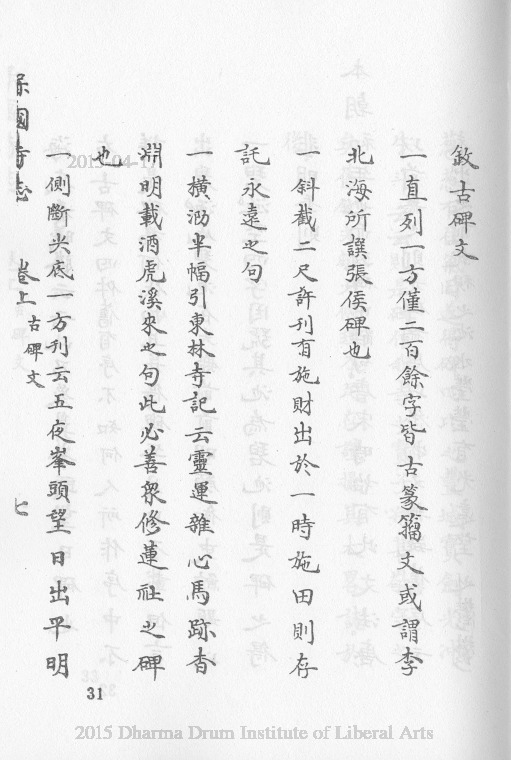 敘古碑文
一直列一方僅二百餘字皆古篆籀文或謂李
北海所譔張侯碑也
一斜截二尺許刊有施財出於一時施田則存
託永遠之句
一橫泐半幅引東林寺記云靈運雜心馬跡杳
淵明載酒虎溪來之句此必善衆修蓮社之碑
也
一側斷尖底一方刊云五夜峯頭望日出平明
保國寺志 卷上 古碑文 七
31
2015-04-17
2015 Dharma Drum Institute of Liberal Arts